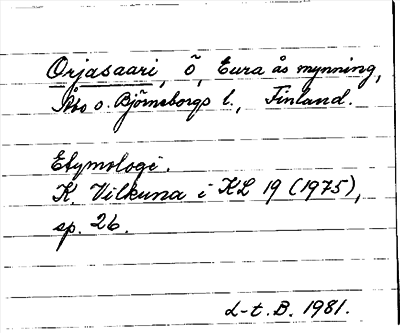 Orjasaari, ö, Eura ås mynning,
Åbo o. Björneborgs l., Finland.
Etymologi.
K. Vilkuna i KL 19 (1975),
sp. 26.
L-t. B. 1981.